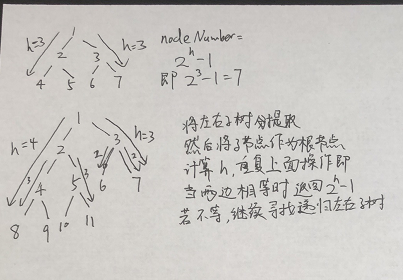 1
h=3
2
3
h=3
4
5
6
7
nodeNumber=
2^h-1
即 2^3-1=7
1
h=4
2
3
h=3
4
5
6
7
3
3
2
2
8
9
10
11
将左右子树分提取
然后将子节点作为根节点
计算h,重复上面操作即
当两边相等时 返回2^h-1
若不等,继续寻找递归左右子树